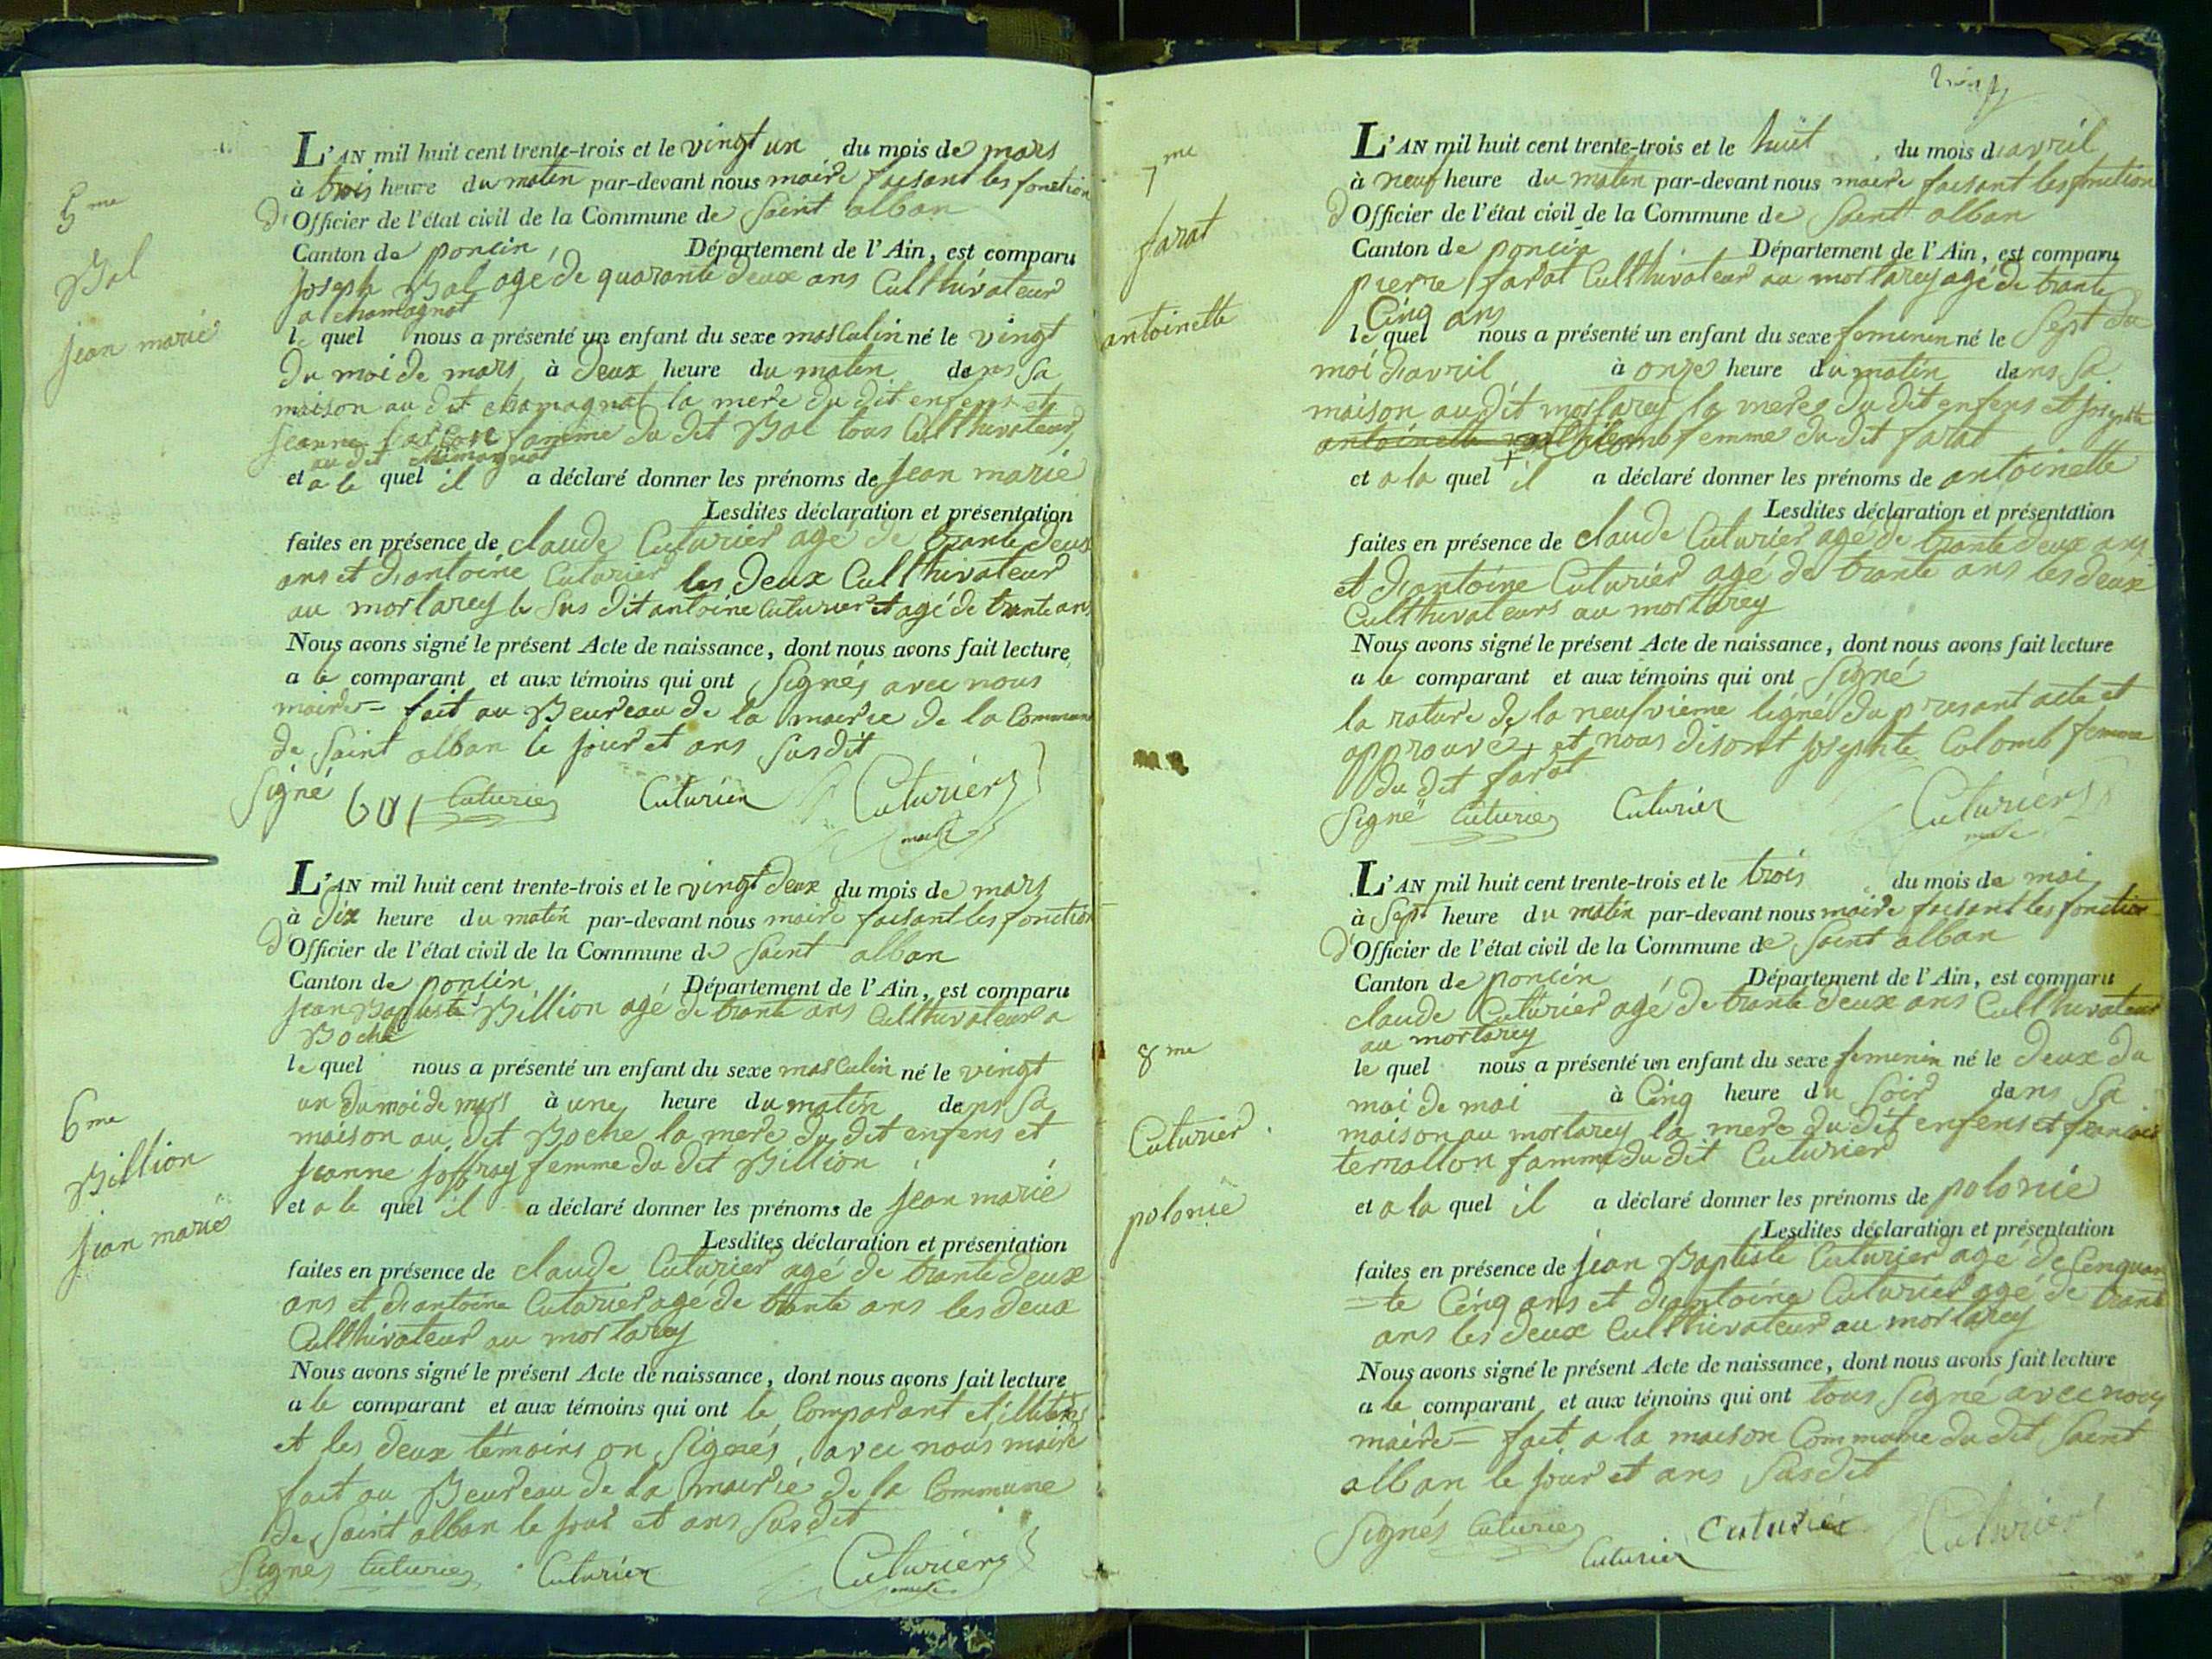 5me
Bal
jean marie
L'AN mil huit cent trente-trois et le vingt un du mois de mars
à trois heure du matin par-devant nous maire faisant les fonction
d'Officier de l'état civil de la Commune de Saint alban
Canton de poncin, Département de l'Ain, est comparu
joseph Bal agé de quarante deux ans Cullthivateur
a chamagnat
le quel nous a présenté un enfant du sexe masculin né le vingt
du moi de mars à deux heure du matin dans sa
maison au dit chamagnat la mere du dit enfens et
jeanne famme du dit Bal tous Cullthivateur
au dit chamagnat
et a le quel il a déclaré donner les prénoms de jean marie
Lesdites déclaration et présentation
faites en présence de claude Cuturier agé de trante deux
ans et d'antoine Cuturier les deux Cullthivateur
au mortarey le sus dit antoine Cuturier et agé de trante ans
Nous avons signé le présent Acte de naissance, dont nous avons fait lecture
a le comparant et aux témoins qui ont Signés avec nous
maire = fait au Beureau de la mairie de la Commune
de Saint alban le jour et ans susdit
Signé bal Cuturier Cuturier Cuturier
maire
6me
Billion
jean marie
L'AN mil huit cent trente-trois et le vingt deux du mois de mars
à dix heure du matin par-devant nous maire faisant les fonction
d'Officier de l'état civil de la Commune de Saint alban
Canton de poncin, Département de l'Ain, est comparu
jean Baptiste Billion agé de trante ans Cullthivateur a
Boche
le quel nous a présenté un enfant du sexe masculin né le vingt
un du moi de mars à une heure du matin dans sa
maison au dit Boche la mere du dit enfens et
jeanne joffray femme du dit Billion
et a le quel il a déclaré donner les prénoms de jean marie
Lesdites déclaration et présentation
faites en présence de claude Cuturier agé de trante deux
ans et d'antoine Cuturier agé de trante ans les deux
Cullthivateur au mortarey
Nous avons signé le présent Acte de naissance, dont nous avons fait lecture
a le comparant et aux témoins qui ont le Comparant et illiteré
et les deux témoins on Signés avec nous maire
fait au Beureau de la mairie de la Commune
de Saint alban le jour et ans susdit
Signés Cuturier Cuturier Cuturier
maire
7me
farat
antoinette
L'AN mil huit cent trente-trois et le huit du mois d'avril
à neuf heure du matin par-devant nous maire faisant les fonction
d'Officier de l'état civil de la Commune de Saint alban
Canton de poncin Département de l'Ain, est comparu
pierre farat Cullthivateur au mortarey agé de trante
Cinq ans
le quel nous a présenté un enfant du sexe feminin né le Sept du
moi d'avril à onze heure du matin dans sa
maison au dit mortarey la mere du dit enfens et josephte
antoinette Colomb femme du dit farat
et a la quel + il a déclaré donner les prénoms de antoinette
Lesdites déclaration et présentation
faites en présence de claude Cuturier agé de trante deux ans
et d'antoine Cuturier agé de trante ans les deux
Cullthivateurs au mortarey
Nous avons signé le présent Acte de naissance, dont nous avons fait lecture
a le comparant et aux témoins qui ont Signé
la rature de la neufvieme ligne du presant acte et
approuvé + et nous disont josephte Colomb femme
du dit farat
Signé Cuturier Cuturier Cuturier
maire
8me
Cuturier
polonie
L'AN mil huit cent trente-trois et le trois du mois de mai
à Sept heure du matin par-devant nous maire faisant les fonction
d'Officier de l'état civil de la Commune de Saint alban
Canton de poncin Département de l'Ain, est comparu
claude Cuturier agé de trante deux ans Cullthivateur
au mortarey
le quel nous a présenté un enfant du sexe feminin né le deux du
moi de mai à Cinq heure du Soir dans sa
maison au mortarey la mere du dit enfens et francoise
ternallon famme du dit Cuturier
et a la quel il a déclaré donner les prénoms de polonie
Lesdites déclaration et présentation
faites en présence de jean Baptiste Cuturier agé de Cenquan
=te Cinq ans et d'antoine Cuturier agé de trante
ans les deux Cullthivateur au mortarey
Nous avons signé le présent Acte de naissance, dont nous avons fait lecture
a le comparant et aux témoins qui ont tous Signé avec nous
maire = fait a la maison Commune du dit Saint
alban le jour et ans Susdit
Signés Cuturier Cuturier Cuturier Cuturier